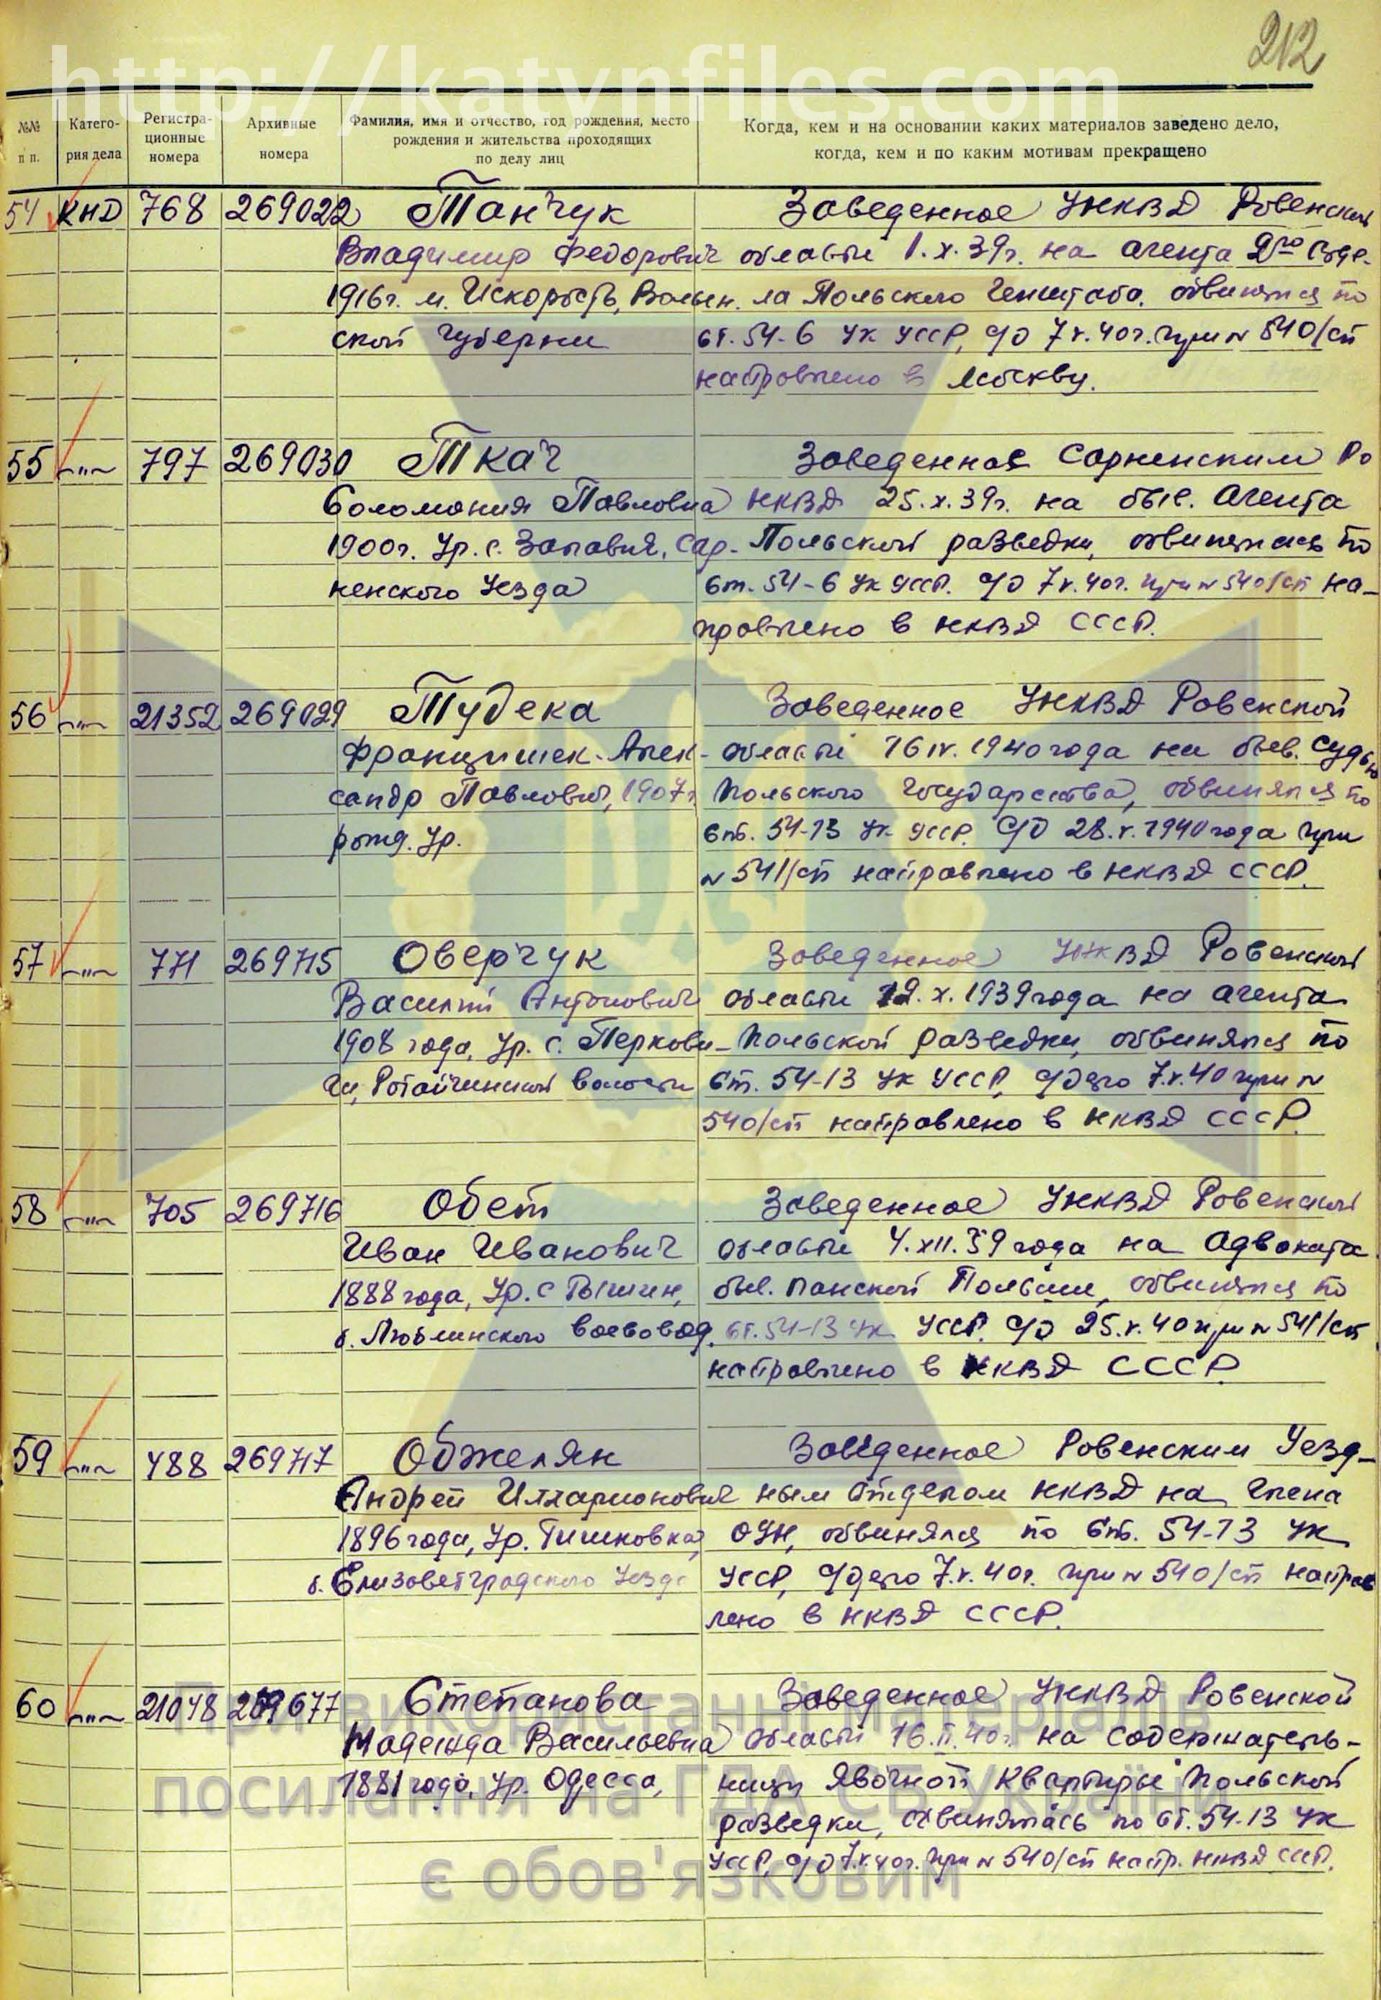 212
http://katynfiles.com
№№ п п.
Катего-
рия дела
Регистра-
ционные
номера
Архивные
номера
Фамилия, имя и отчество, год рождения, место
рождения и жительства проходящих
по делу лиц
Когда, кем и на основании каких материалов заведено дело,
когда, кем и по каким мотивам прекращено
54 КНД 768 269022 Танчук Заведенное УНКВД Ровенской
Владимир Федорович области 1.X.39г. на агента 2го
1916г. м. Искорость, Волын. ла Польского Генштаба, обвинялся по
ской губернии ст. 54-6 УК УССР, с/д 7.V.40г. при № 540/сп
направлено в Москву.
55 –"– 797 269030 Ткач Заведенное Сарненским РО
Соломония Павловна НКВД 25.X.39г. на быв. агента
1900г. ур. с. Сар- Польской разведки, обвинялась по
ненского уезда ст. 54-6 УК УССР. с/д 7.V.40г. при № 540/сп на-
правлено в НКВД СССР.
56 –"– 21352 269029 Тубека Заведенное УНКВД Ровенской
Францишек-Алек- области 16.IV.1940 года на быв. судью
сандр Павлович, 1907г Польского Государства, обвинялся по
рожд. ур. ст. 54-13 УК УССР. с/д 28.V.1940 года при
№ 541/сп направлено в НКВД СССР.
57 –"– 771 269715 Оверчук Заведенное УНКВД Ровенской
Василий Антонович области 19.X.1939 года на агента
1908 года, ур. с. Перкови- Польской разведки, обвинялся по
чи, волости ст. 54-13 УК УССР, с/дело 7.V.40 при №
540/сп направлено в НКВД СССР.
58 –"– 705 269716 Обет Заведенное УНКВД Ровенской
Иван Иванович области 4.XII.39 года на адвоката
1888 года, ур. с быв. панской Польши, обвинялся по
б. Люблинского воеводз. ст. 54-13 УК УССР. с/д 25.V.40 при № 541/сп
направлено в НКВД СССР.
59 –"– 488 269717 Обжелян Заведенное Ровенским Уезд-
Андрей Илларионович ным Отделом НКВД на члена
1896 года, ур. Тишковка, ОУН, обвинялся по ст. 54-13 УК
б. Елизаветградского уезда УССР, с/дело 7.V.40г. при № 540/сп направ
лено в НКВД СССР.
60 –"– 21048 269677 Степанова Заведенное УНКВД Ровенской
Надежда Васильевна области 16.II.40г. на содержатель-
1881 года, ур. Одесса, ницу явочной квартиры Польской
разведки, обвинялась по ст. 54-13 УК
УССР, с/д 7.V.40г. при № 540/сп напр. НКВД СССР.
При використанні матеріалів
посилання на ГДА СБ України
є обов'язковим